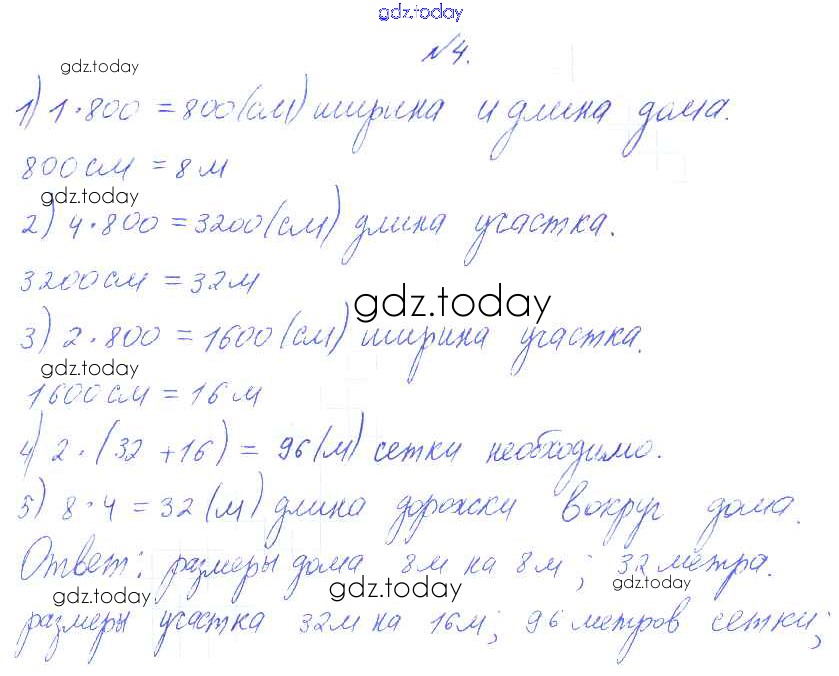 gdz.today
№4.
gdz.today
1) 1·800 = 800(см) ширина и длина дома.
800см = 8м
gdz.today
2) 4·800 = 3200(см) длина участка.
3200см = 32м
gdz.today
3) 2·800 = 1600(см) ширина участка.
gdz.today
1600см = 16м
4) 2·(32+16) = 96(м) сетки необходимо.
5) 8·4 = 32(м) длина дорожки вокруг дома.
Ответ: размеры дома 8м на 8м; 32 метра.
gdz.today gdz.today gdz.today
размеры участка 32м на 16м; 96 метров сетки;